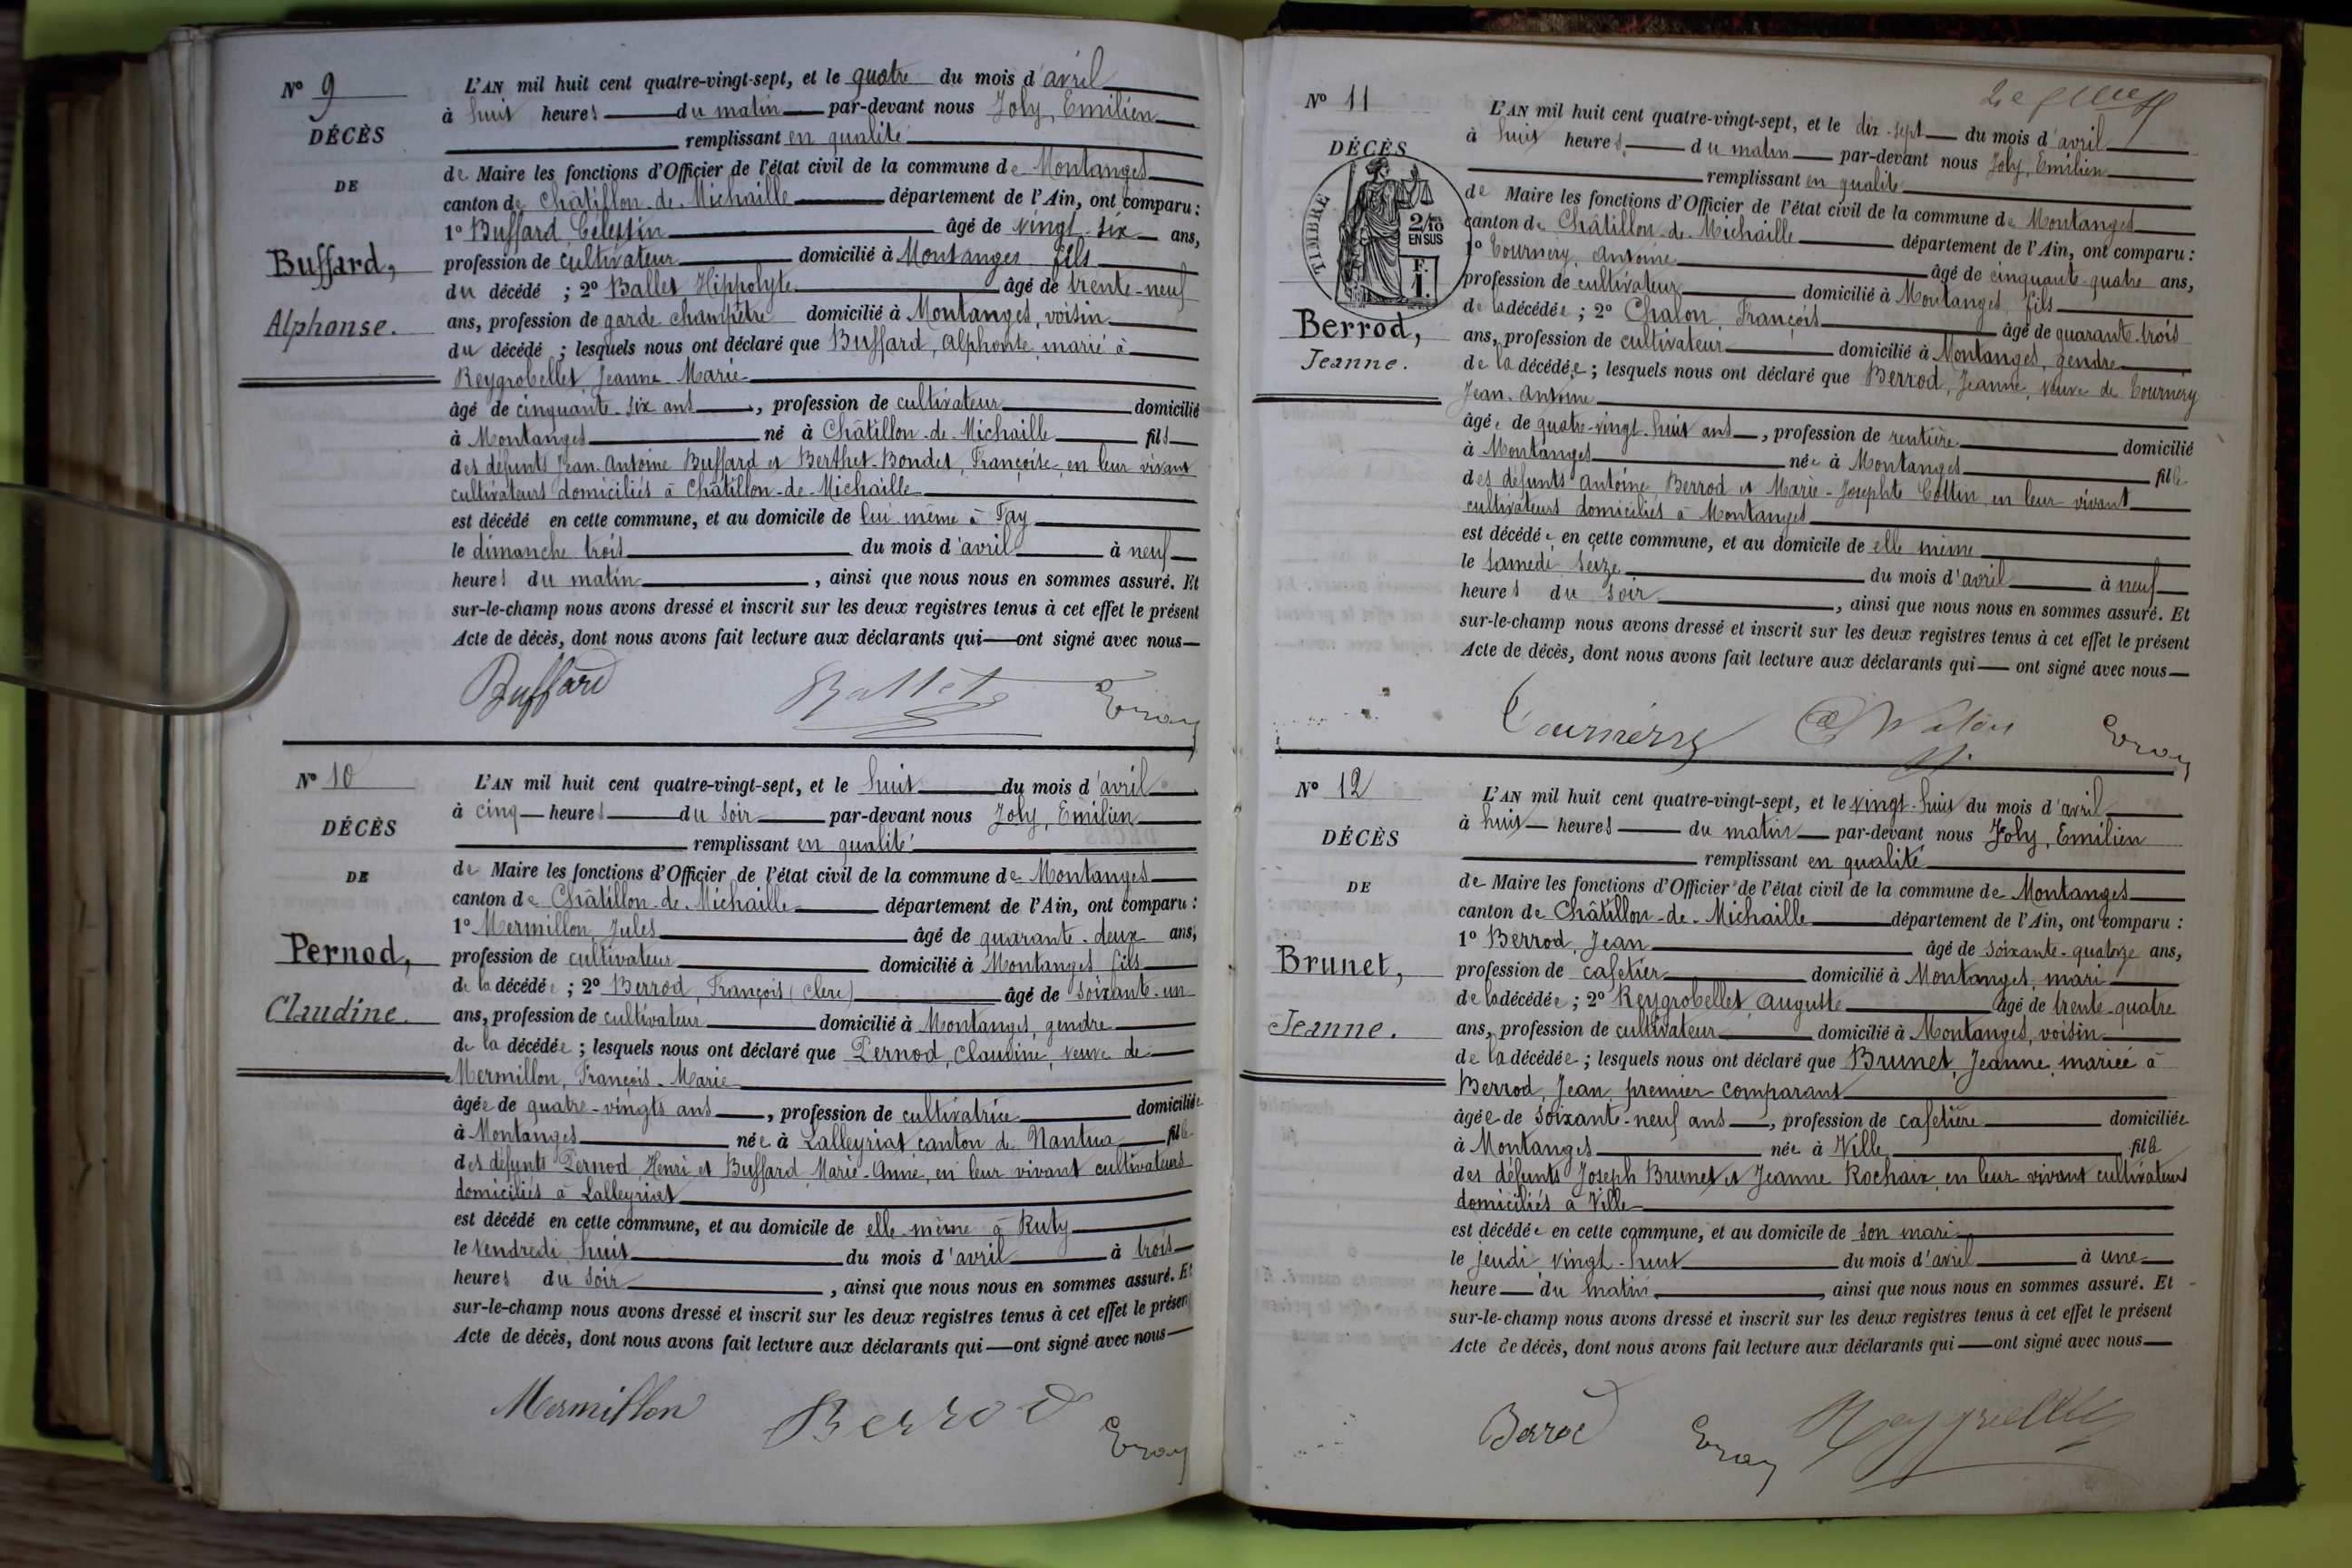 N° 9
DÉCÈS
DE
Buffard,
Alphonse.
L'AN mil huit cent quatre-vingt-sept, et le quatre du mois d'avril
à huit heures du matin par-devant nous Joly, Emilien
remplissant en qualité
de Maire les fonctions d'Officier de l'état civil de la commune de Montanges
canton de Châtillon-de-Michaille département de l'Ain, ont comparu :
1° Buffard Célestin âgé de vingt-six ans,
profession de cultivateur domicilié à Montanges fils
du décédé ; 2° Ballet Hippolyte âgé de trente-neuf
ans, profession de garde champêtre domicilié à Montanges, voisin
du décédé ; lesquels nous ont déclaré que Buffard, Alphonse marié à
Reygrobellet Jeanne-Marie
âgé de cinquante-six ans, profession de cultivateur domicilié
à Montanges né à Châtillon-de-Michaille fils
des défunts Jean-Antoine Buffard et Berthet-Bondet, Françoise, en leur vivant
cultivateurs domiciliés à Châtillon-de-Michaille
est décédé en cette commune, et au domicile de lui même à Tay
le dimanche trois du mois d'avril à neuf
heures du matin, ainsi que nous nous en sommes assuré. Et
sur-le-champ nous avons dressé et inscrit sur les deux registres tenus à cet effet le présent
Acte de décès, dont nous avons fait lecture aux déclarants qui ont signé avec nous
Buffard Ballet
N° 10
DÉCÈS
DE
Pernod,
Claudine.
L'AN mil huit cent quatre-vingt-sept, et le huit du mois d'avril
à cinq heures du soir par-devant nous Joly, Emilien
remplissant en qualité
de Maire les fonctions d'Officier de l'état civil de la commune de Montanges
canton de Châtillon-de-Michaille département de l'Ain, ont comparu :
1° Mermillon Jules âgé de quarante-deux ans,
profession de cultivateur domicilié à Montanges fils
de la décédée ; 2° Berrod, François (clerc) âgé de soixante-un
ans, profession de cultivateur domicilié à Montanges, gendre
de la décédée ; lesquels nous ont déclaré que Pernod, Claudine, veuve de
Mermillon, François-Marie
âgée de quatre-vingts ans, profession de cultivatrice domiciliée
à Montanges née à Lalleyriat canton de Nantua fille
des défunts Pernod, Henri et Buffard, Marie-Anne, en leur vivant cultivateurs
domiciliés à Lalleyriat
est décédé en cette commune, et au domicile de elle-même à Ruty
le vendredi huit du mois d'avril à trois
heures du soir, ainsi que nous nous en sommes assuré. Et
sur-le-champ nous avons dressé et inscrit sur les deux registres tenus à cet effet le présent
Acte de décès, dont nous avons fait lecture aux déclarants qui ont signé avec nous
Mermillon Berrod
N° 11
DÉCÈS
TIMBRE
2/10
EN SUS
F.
1.
Berrod,
Jeanne.
L'AN mil huit cent quatre-vingt-sept, et le dix-sept du mois d'avril
à huit heures du matin par-devant nous Joly, Emilien
remplissant en qualité
de Maire les fonctions d'Officier de l'état civil de la commune de Montanges
canton de Châtillon-de-Michaille département de l'Ain, ont comparu :
1° Tournéry, Antoine âgé de cinquante-quatre ans,
profession de cultivateur domicilié à Montanges, fils
de la décédée ; 2° Chalon, François âgé de quarante-trois
ans, profession de cultivateur domicilié à Montanges, gendre
de la décédée ; lesquels nous ont déclaré que Berrod, Jeanne, veuve de Tournéry
Jean-Antoine
âgée de quatre-vingt-huit ans, profession de rentière domicilié
à Montanges née à Montanges fille
des défunts Antoine Berrod et Marie-Josephte Cottin, en leur vivant
cultivateurs domiciliés à Montanges
est décédée en cette commune, et au domicile de elle même
le samedi seize du mois d'avril à neuf
heures du soir, ainsi que nous nous en sommes assuré. Et
sur-le-champ nous avons dressé et inscrit sur les deux registres tenus à cet effet le présent
Acte de décès, dont nous avons fait lecture aux déclarants qui ont signé avec nous
N° 12
DÉCÈS
DE
Brunet,
Jeanne.
L'AN mil huit cent quatre-vingt-sept, et le vingt-huit du mois d'avril
à huit heures du matin par-devant nous Joly, Emilien
remplissant en qualité
de Maire les fonctions d'Officier de l'état civil de la commune de Montanges
canton de Châtillon-de-Michaille département de l'Ain, ont comparu :
1° Berrod, Jean âgé de soixante-quatorze ans,
profession de cafetier domicilié à Montanges, mari
de la décédée ; 2° Reygrobellet, Auguste âgé de trente-quatre
ans, profession de cultivateur domicilié à Montanges, voisin
de la décédée ; lesquels nous ont déclaré que Brunet, Jeanne, mariée à
Berrod, Jean, premier comparant
âgée de soixante-neuf ans, profession de cafetière domiciliée
à Montanges née à Ville fille
des défunts Joseph Brunet et Jeanne Rochaix, en leur vivant cultivateurs
domiciliés à Ville
est décédée en cette commune, et au domicile de son mari
le jeudi vingt-huit du mois d'avril à une
heure du matin, ainsi que nous nous en sommes assuré. Et
sur-le-champ nous avons dressé et inscrit sur les deux registres tenus à cet effet le présent
Acte de décès, dont nous avons fait lecture aux déclarants qui ont signé avec nous
Berrod